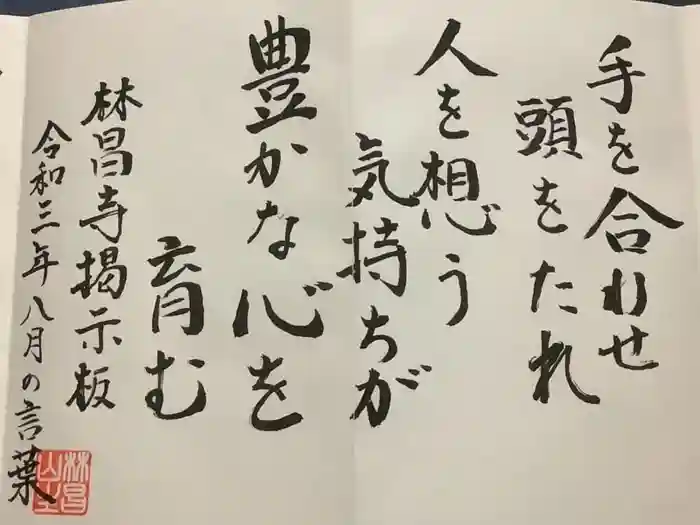 手を合わせ
頭をたれ
人を想う
気持ちが
豊かな心を
育む
林昌寺掲示板
令和三年八月の言葉